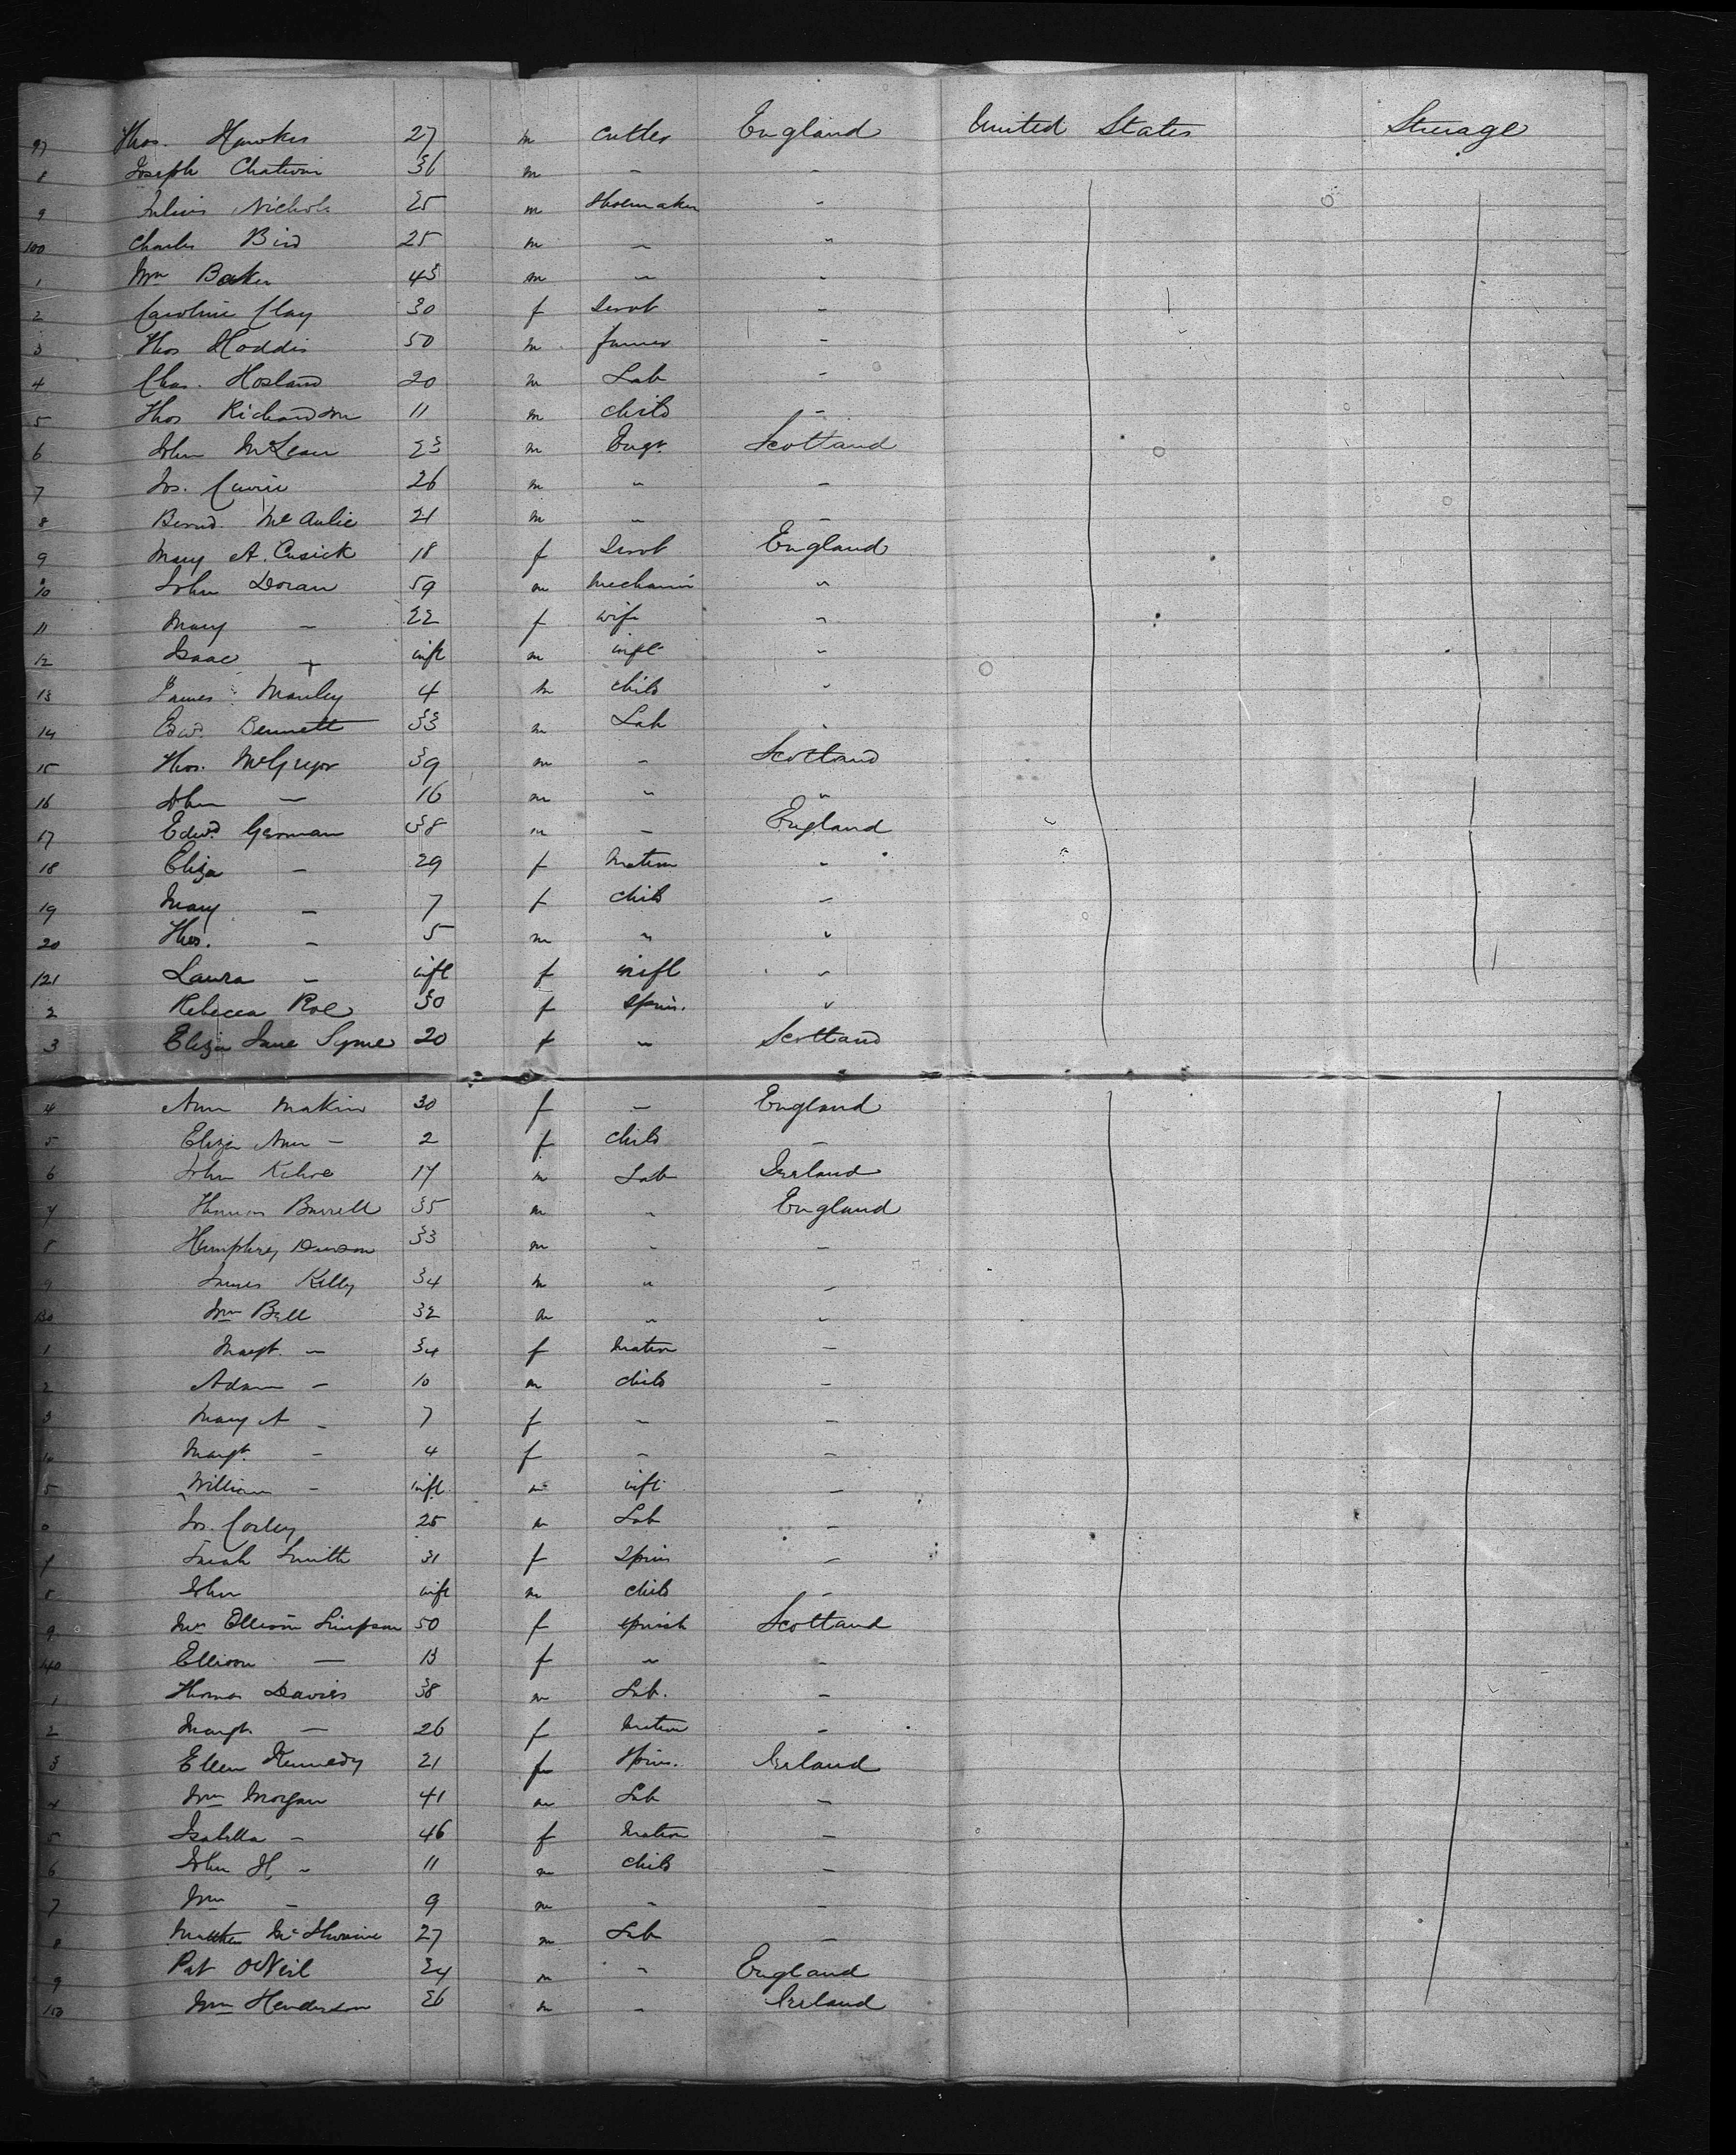 97 Thos. Hawkes 27 m Cutler England United States Steerage
8 Joseph Chatwin 36 m - -
9 Julius Nichols 25 m Shoemaker -
100 Charles Bird 25 m - "
1 Wm Baker 43 m - -
2 Caroline Clay 30 f Servt -
3 Thos Hoddis 50 m farmer -
4 Chas. Hosland 20 m Lab -
5 Thos Richardson 11 m child -
6 John McLean 23 m Engr. Scotland
7 Jos. Currie 26 m " -
8 Bernd. McAulie 21 m - -
9 Mary A. Cusick 18 f Servt England
10 John Doran 59 m Mechanic "
11 Mary - 22 f wife -
12 Isaac + inft m inft -
13 James Manley 4 m child -
14 Edwd. Bennett 33 m Lab -
15 Thos. McGregor 39 m - Scotland
16 John - 16 m " "
17 Edwd. German 38 m - England
18 Eliza - 29 f Matron -
19 Mary - 7 f child -
20 Thos. - 5 m " "
121 Laura - inft f inft -
2 Rebecca Roe 30 f Spins. "
3 Eliza Jane Syme 20 f - Scotland
4 Ann Makin 30 f - England
5 Eliza Ann - 2 f child -
6 John Kehoe 17 m Lab Ireland
7 Thomas Burrell 35 m - England
8 Humphrey 33 m - -
9 James Kelly 34 m " -
130 Wm Bell 32 m " -
1 Margt. - 34 f Matron -
2 Adam - 10 m child -
3 Mary A - 7 f - -
4 Margt. - 4 f - -
5 William - inft m inft -
6 Jos. Corley 25 m Lab -
7 Sarah Smith 31 f Spins -
8 John inft m child -
9 Mrs Ellison Simpson 50 f Scotland
140 Ellison - 13 f " -
1 Thomas Davies 38 m Lab. -
2 Margt. - 26 f Matron -
3 Ellen Kennedy 21 f Spins. Ireland
4 Wm Morgan 41 m Lab -
5 Isabella - 46 f Matron -
6 John H. - 11 m child -
7 Wm - 9 m - -
8 Matthew 27 m Lab -
9 Pat O'Neil 24 m - England
150 Wm Henderson 26 m - Ireland